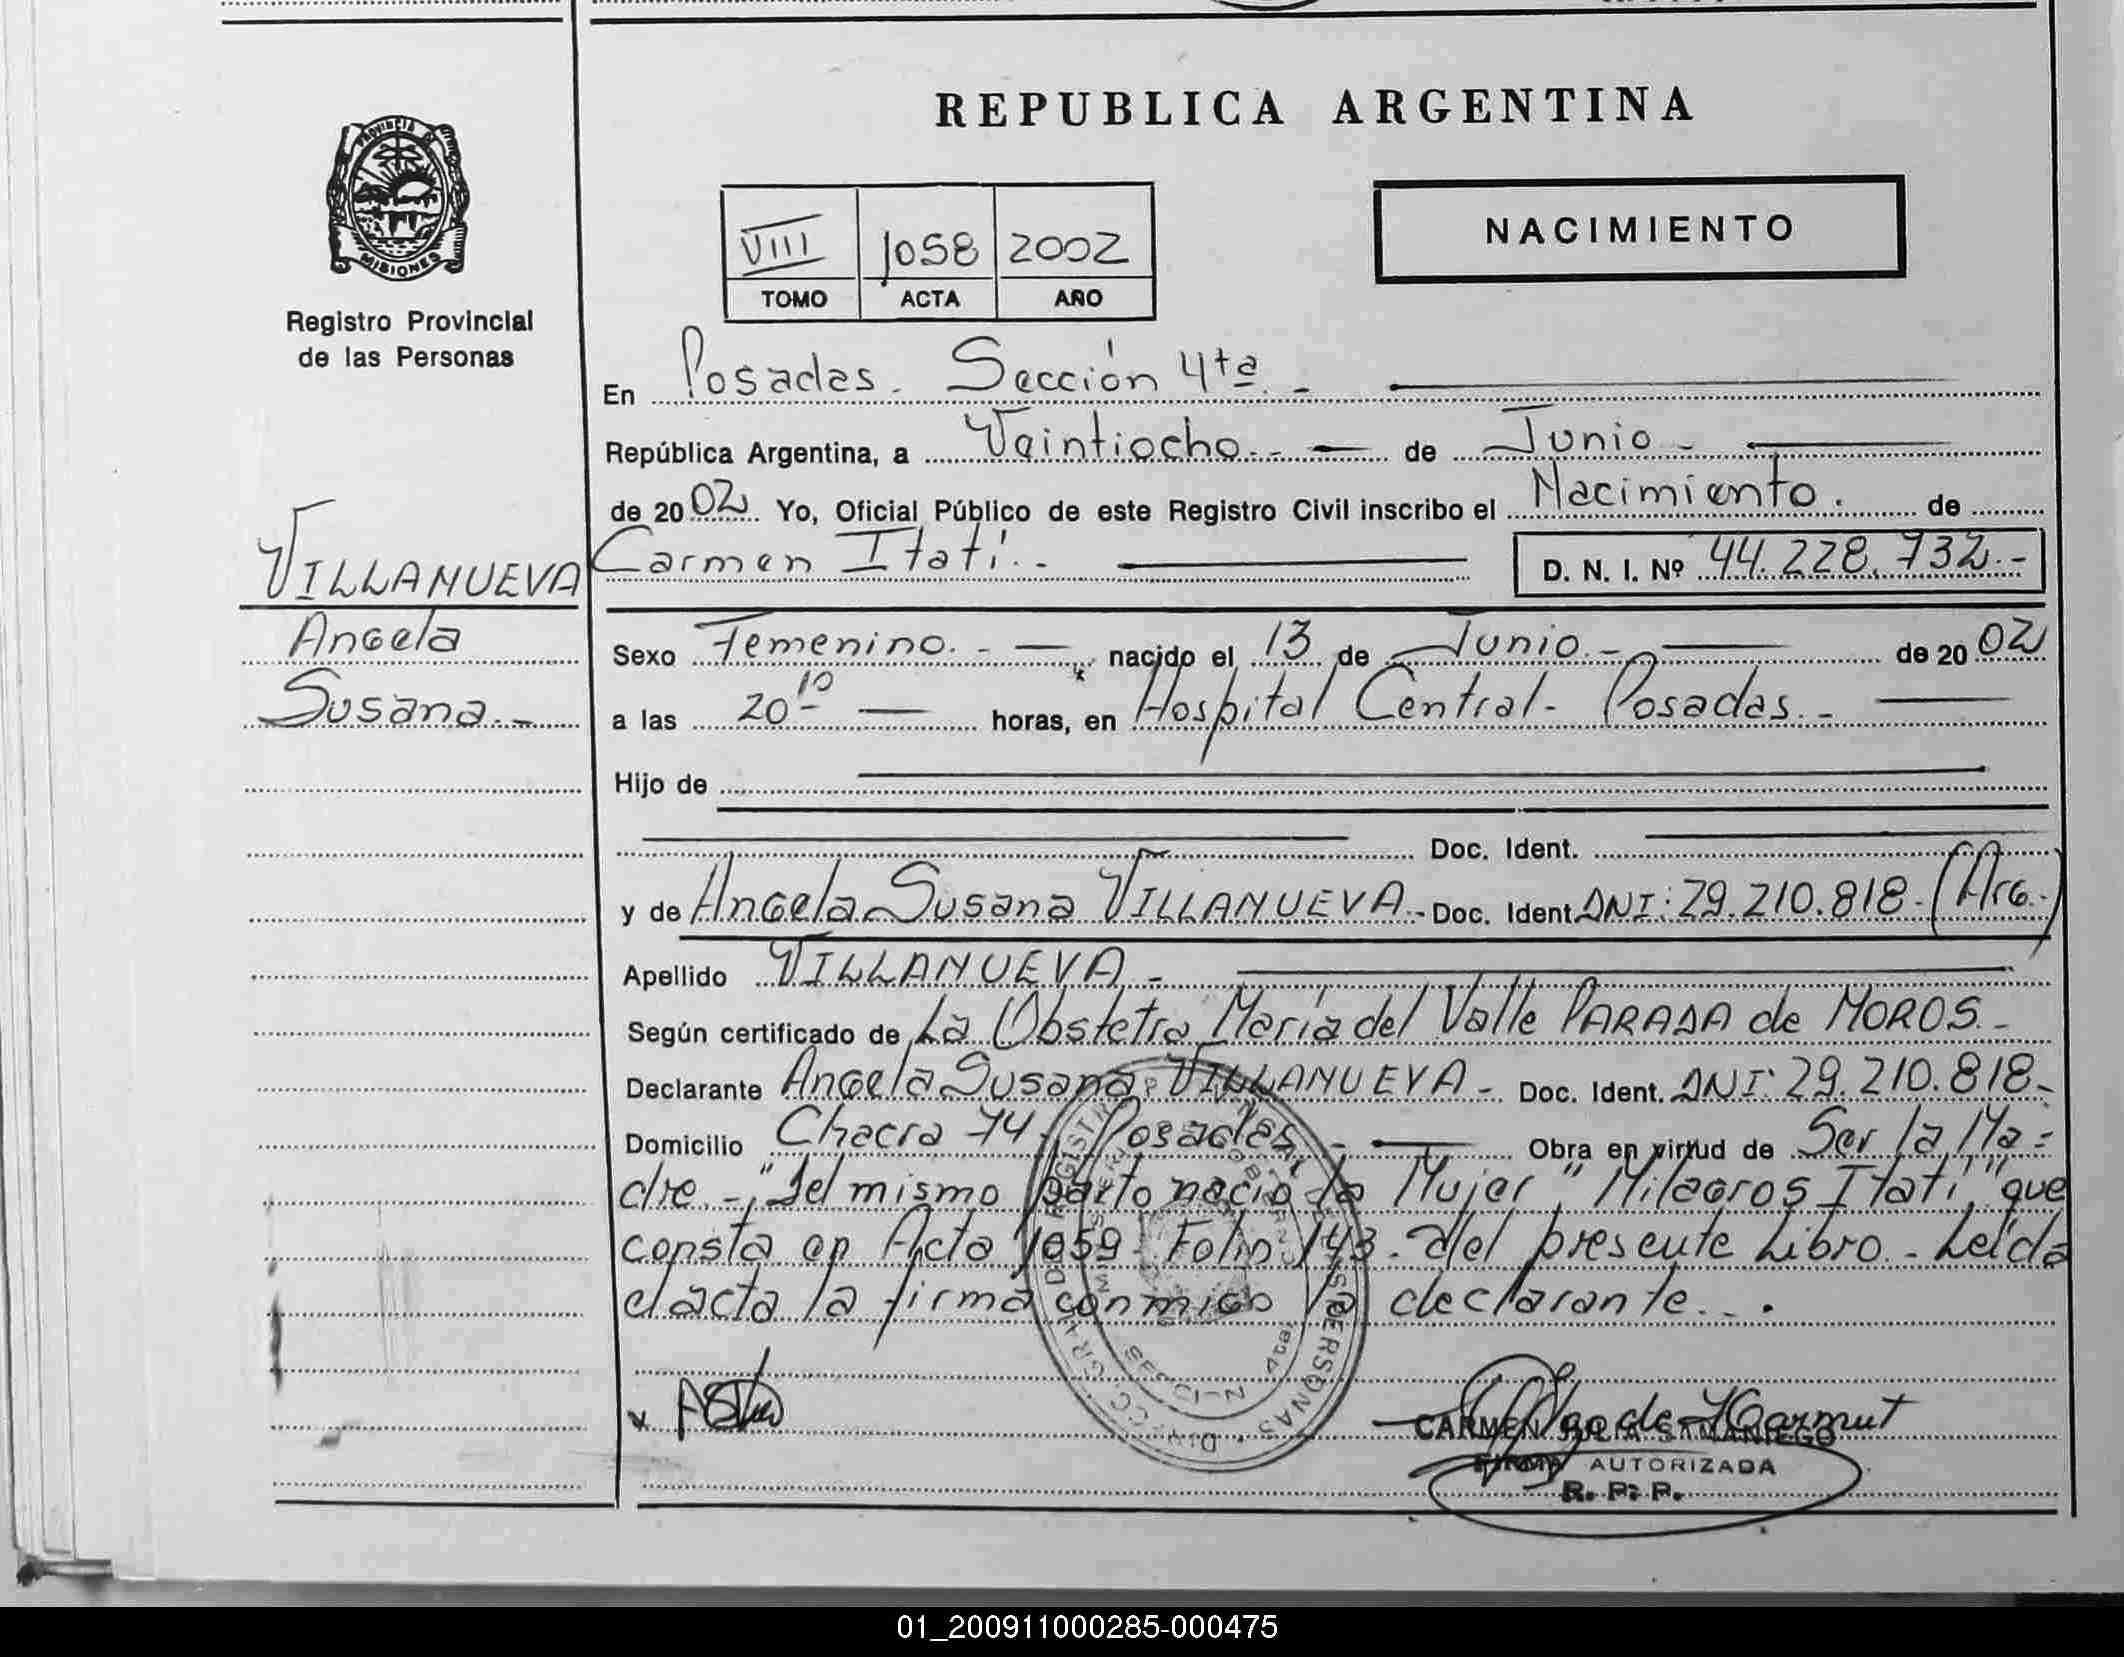 REPUBLICA ARGENTINA
PROVINCIA DE
MISIONES
Registro Provincial
de las Personas
VIII 1058 2002
TOMO ACTA AÑO
NACIMIENTO
En Posadas. Sección 4ta. -
República Argentina, a Veintiocho. - de Junio -
de 2002 Yo, Oficial Público de este Registro Civil inscribo el Nacimiento. de
Carmen Itatí. - D. N. I. Nº 44.228.732. -
VILLANUEVA
Angela
Susana. -
Sexo Femenino. - nacido el 13 de Junio. - de 2002
a las 20 10 horas, en Hospital Central - Posadas. -
Hijo de
Doc. Ident.
y de Angela Susana VILLANUEVA. - Doc. Ident DNI: 29.210.818. (Arg.)
Apellido VILLANUEVA -
Según certificado de La Obstetra María del Valle PARADA de MOROS. -
Declarante Angela Susana VILLANUEVA - Doc. Ident. DNI: 29.210.818 -
Domicilio Chacra 74. Posadas. - Obra en virtud de Ser la Ma=
dre. - "Del mismo parto nacio la Mujer "Milagros Itatí" que
consta en Acta 1059 Folio 143. del presente Libro. - Leída
el acta la firma conmigo la declarante. - .
CARMEN JULIA SAMANIEGO
FIRMA AUTORIZADA
R. P. P.
01_200911000285-000475